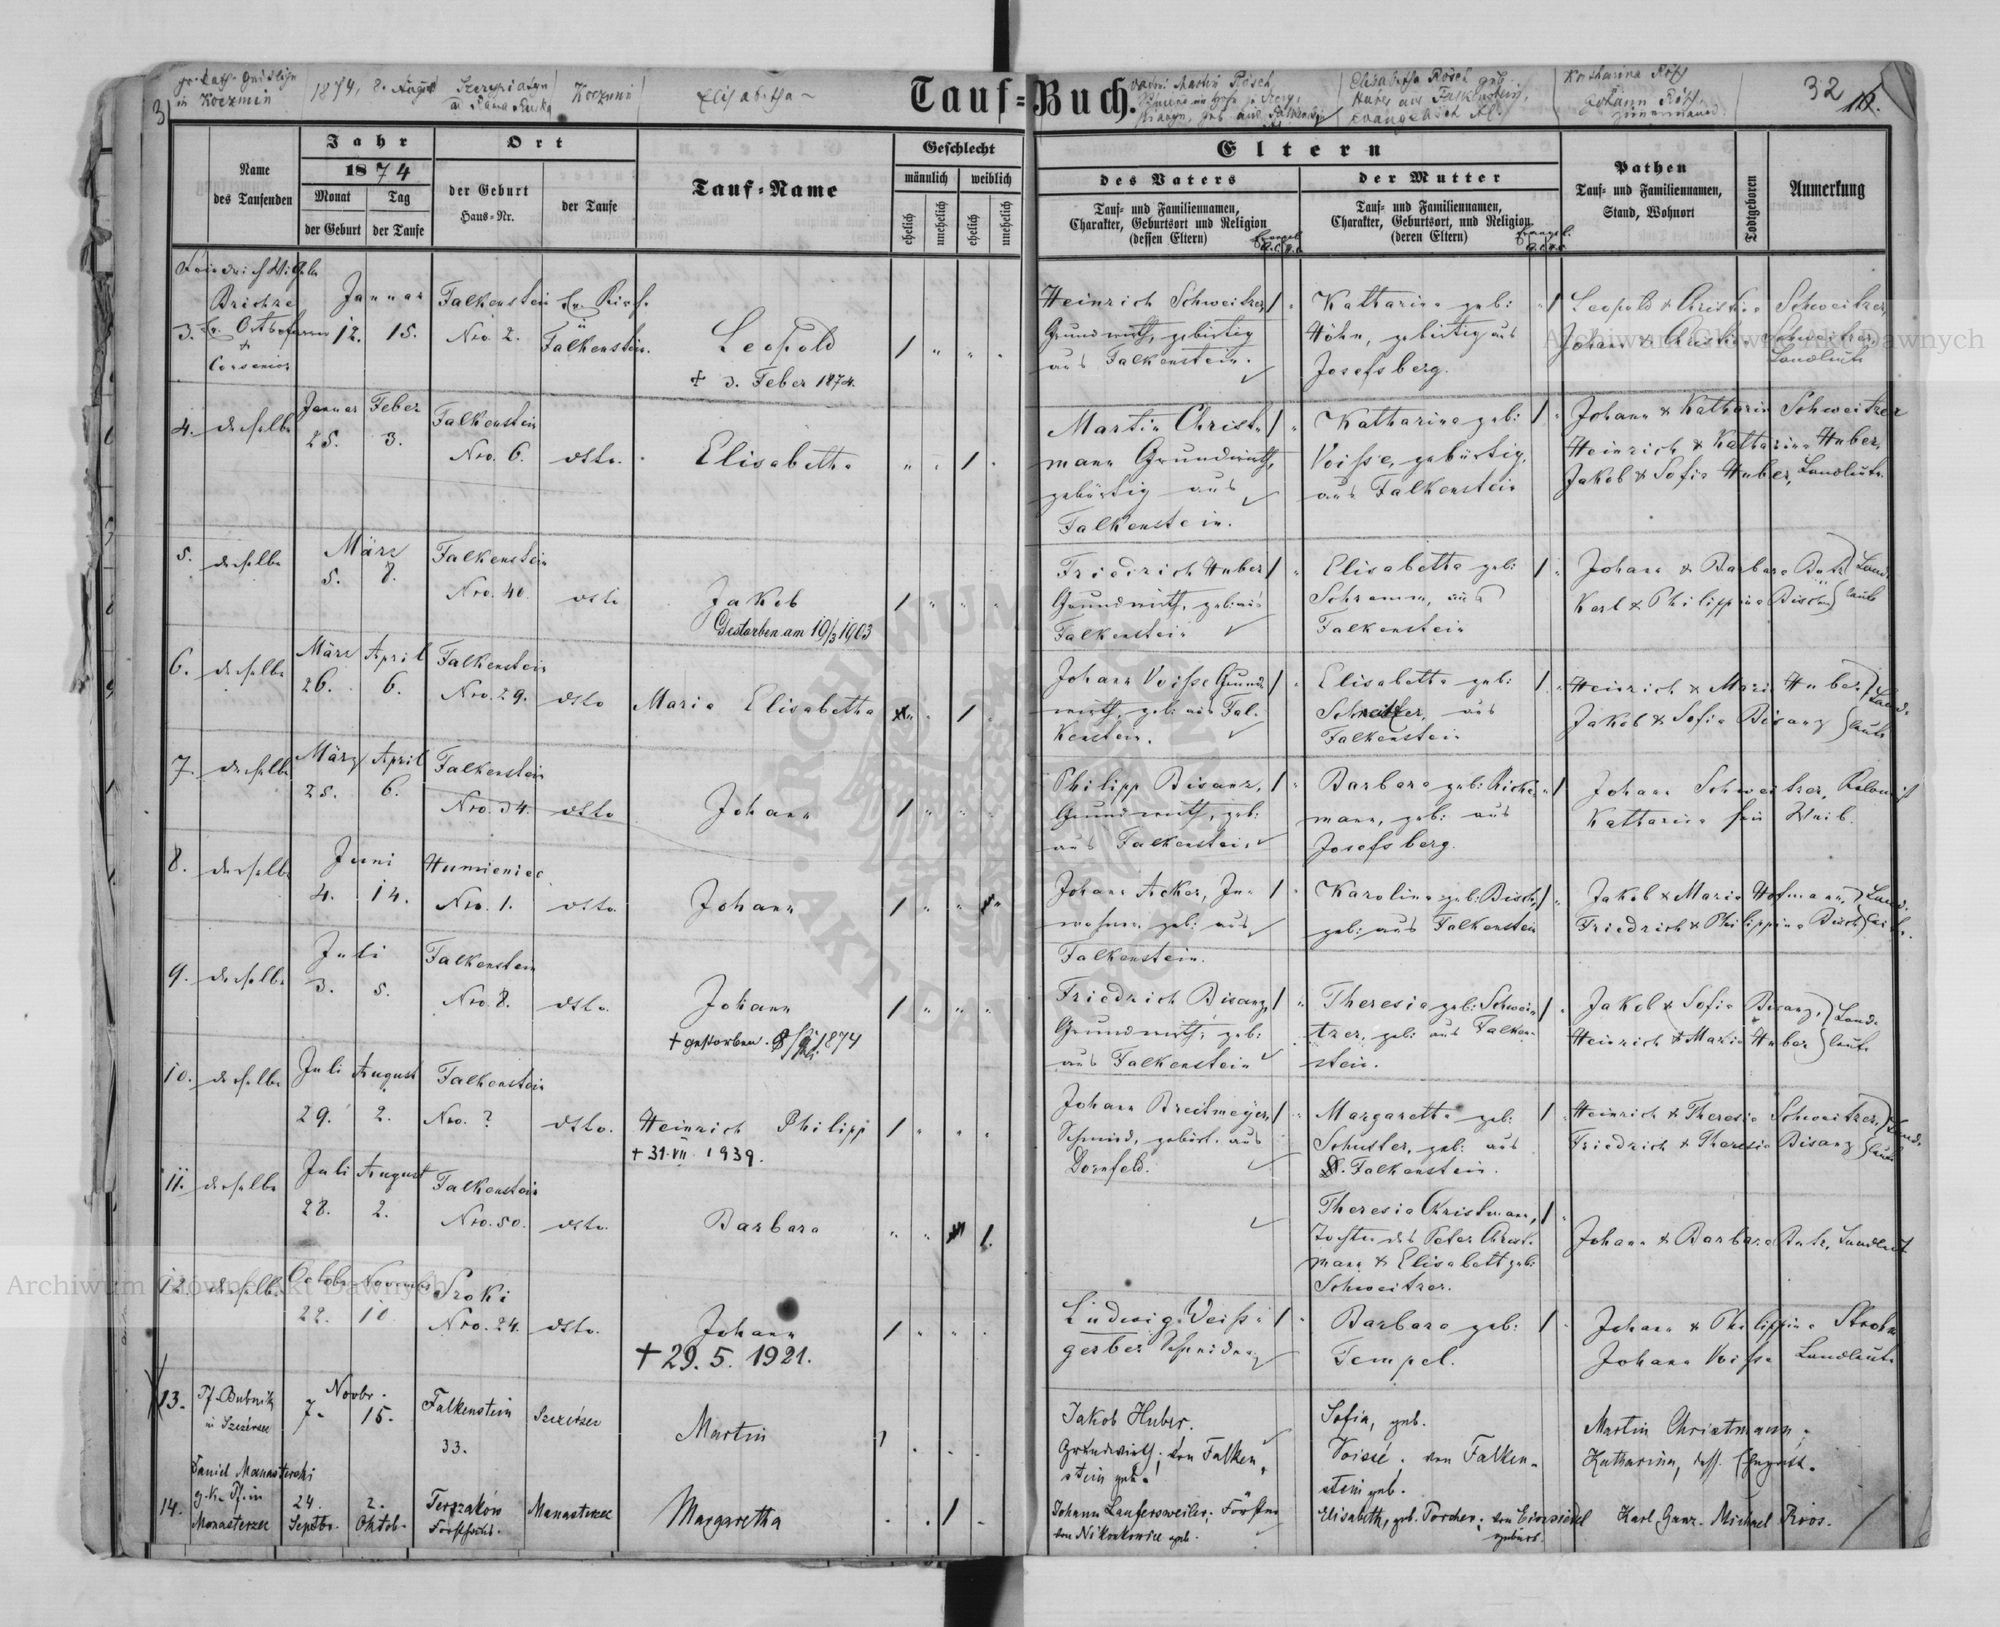 1874, 8. August
Koczmin
Elisabetha
Tauf=Buch.
Katharina Rösch
Johann Rösch,
32
3
Jahr
Ort
Geschlecht
Eltern
Name
des Taufenden
1874
der Geburt
Haus=Nr.
der Taufe
Tauf=Name
männlich
weiblich
des Vaters
der Mutter
Pathen
Tauf= und Familiennamen,
Stand, Wohnort
Todtgeboren
Anmerkung
Monat
Tag
der Geburt
der Taufe
ehelich
unehelich
ehelich
unehelich
Tauf= und Familiennamen,
Charakter, Geburtsort und Religion
(dessen Eltern)
Tauf= und Familiennamen,
Charakter, Geburtsort, und Religion
(deren Eltern)
3.
Januar
12. 15.
Falkenstein
Nro. 2.
Ev. Kirche
Falkenstein.
Leopold
+ 3. Feber 1874.
Heinrich Schweitzer
Grundwirth, gebürtig
aus Falkenstein.
Katharina geb:
Höhn, gebürtig aus
Josefsberg.
Leopold & Christina Schweitzer
Johann & Christina Schweitzer
Landleute
4. derselbe
Januar Feber
25. 3.
Falkenstein
Nro. 6.
dsto.
Elisabetha
Martin Christ-
mann Grundwirth,
gebürtig aus
Falkenstein.
Katharina geb:
Voisse, gebürtig
aus Falkenstein
Johann & Katharin Schweitzer
Heinrich & Katharina Huber
Jakob & Sofia Huber, Landleute.
5. derselbe
März
5. 8.
Falkenstein
Nro. 40.
dsto
Jakob
Gestorben am 19/3 1903
Friedrich Huber
Grundwirth, geb: aus
Falkenstein
Elisabetha geb:
Schramm, aus
Falkenstein
Johann & Barbara Butz
Karl & Philippina Bisch
Landleute
6. derselbe
März April
26. 6.
Falkenstein
Nro. 29.
dsto
Maria Elisabetha
Johann Voisse Grund-
wirth, geb: aus Fal-
kenstein.
Elisabetha geb:
aus
Falkenstein
Heinrich & Maria Huber
Jakob & Sofia Bisanz
Landleute
7. derselbe
März April
25. 6.
Falkenstein
Nro. 34.
dsto
Johann
Philipp Bisanz,
Grundwirth, geb:
aus Falkenstein
Barbara geb: Rich-
mann, geb: aus
Josefsberg.
Johann Schweitzer, Kolonist
Katharina sein Weib.
8. derselbe
Juni
4. 14.
Humieniec
Nro. 1.
dsto.
Johann
Johann Acker, In-
wohner geb: aus
Falkenstein.
Karolina geb: Bisch,
geb: aus Falkenstein
Jakob & Maria Hofmann,
Friedrich & Philippina Bisch
Landleute.
9. derselbe
Juli
3. 5.
Falkenstein
Nro. 8.
dsto.
Johann
+ gestorben 8/Juli 1874
Friedrich Bisanz,
Grundwirth, geb:
aus Falkenstein
Theresia geb: Schwei-
tzer, geb: aus Falken-
stein.
Jakob & Sofia Bisanz,
Heinrich & Maria Huber
Landleute
10. derselbe
Juli August
29. 2.
Falkenstein
Nro. ?
dsto.
Heinrich Philipp
+ 31. VII. 1939.
Johann Breitmeyer,
Schmied, gebürt. aus
Dornfeld.
Margaretha geb:
Schuster, geb: aus
Falkenstein.
Heinrich & Theresia Schweitzer,
Friedrich & Theresia Bisanz
Landleute
11. derselbe
Juli August
28. 2.
Falkenstein
Nro. 50.
dsto.
Barbara
Theresia Christmann,
Tochter des Peter Christ-
mann & Elisabeth geb:
Schweitzer.
Johann & Barbara Butz, Landleute
12. derselbe
October November
22. 10.
Sroki
Nro. 24.
dsto.
Johann
+ 29. 5. 1921.
Ludwig Weiss-
gerber Schneider
Barbara geb:
Tempel.
Johann & Philippina Strohm
Johann Voisse Landleute
13.
Pf. Bubnik
in Szczerzec
Novbr.
7. 15.
Falkenstein
33.
Szczerzec
Martin
Jakob Huber.
Grundwirth, von Falken-
stein geb.
Sofia, geb.
Voissé, von Falken-
stein geb.
Martin Christmann,
Katharina, dess. Ehegatt.
14.
Daniel Manasterski
g.k. Pf. in
Manasterzec
24. 2.
Septbr. Oktob.
Terszaków
Manasterzec
Margaretha
Johann Laufersweiler, Förster
von Nikonkowice geb.
Elisabeth, geb. Porcher, von Einsiedel
gebürt.
Karl Ganz. Michael Roos.
Archiwum Główne Akt Dawnych
Archiwum Główne Akt Dawnych
ARCHIWUM GŁÓWNE AKT DAWNYCH